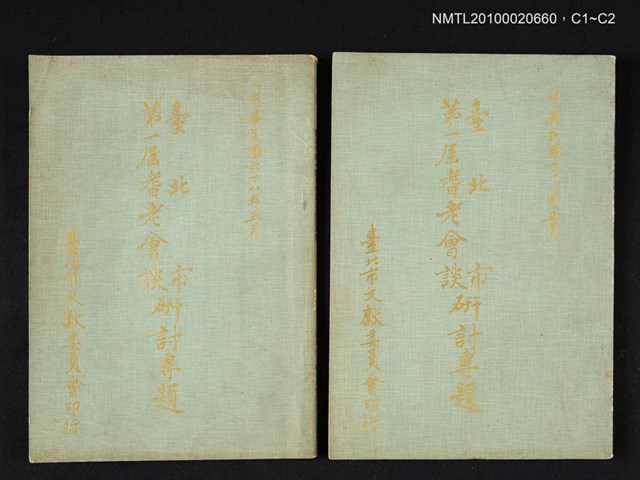 NMTL20100020660，C1~C2
中華民國六十八年五月
臺北市
第一屆耆老會談
研討專題
臺北市文獻委員會印行
中華民國六十八年五月
臺北市
第一屆耆老會談
研討專題
臺北市文獻委員會印行